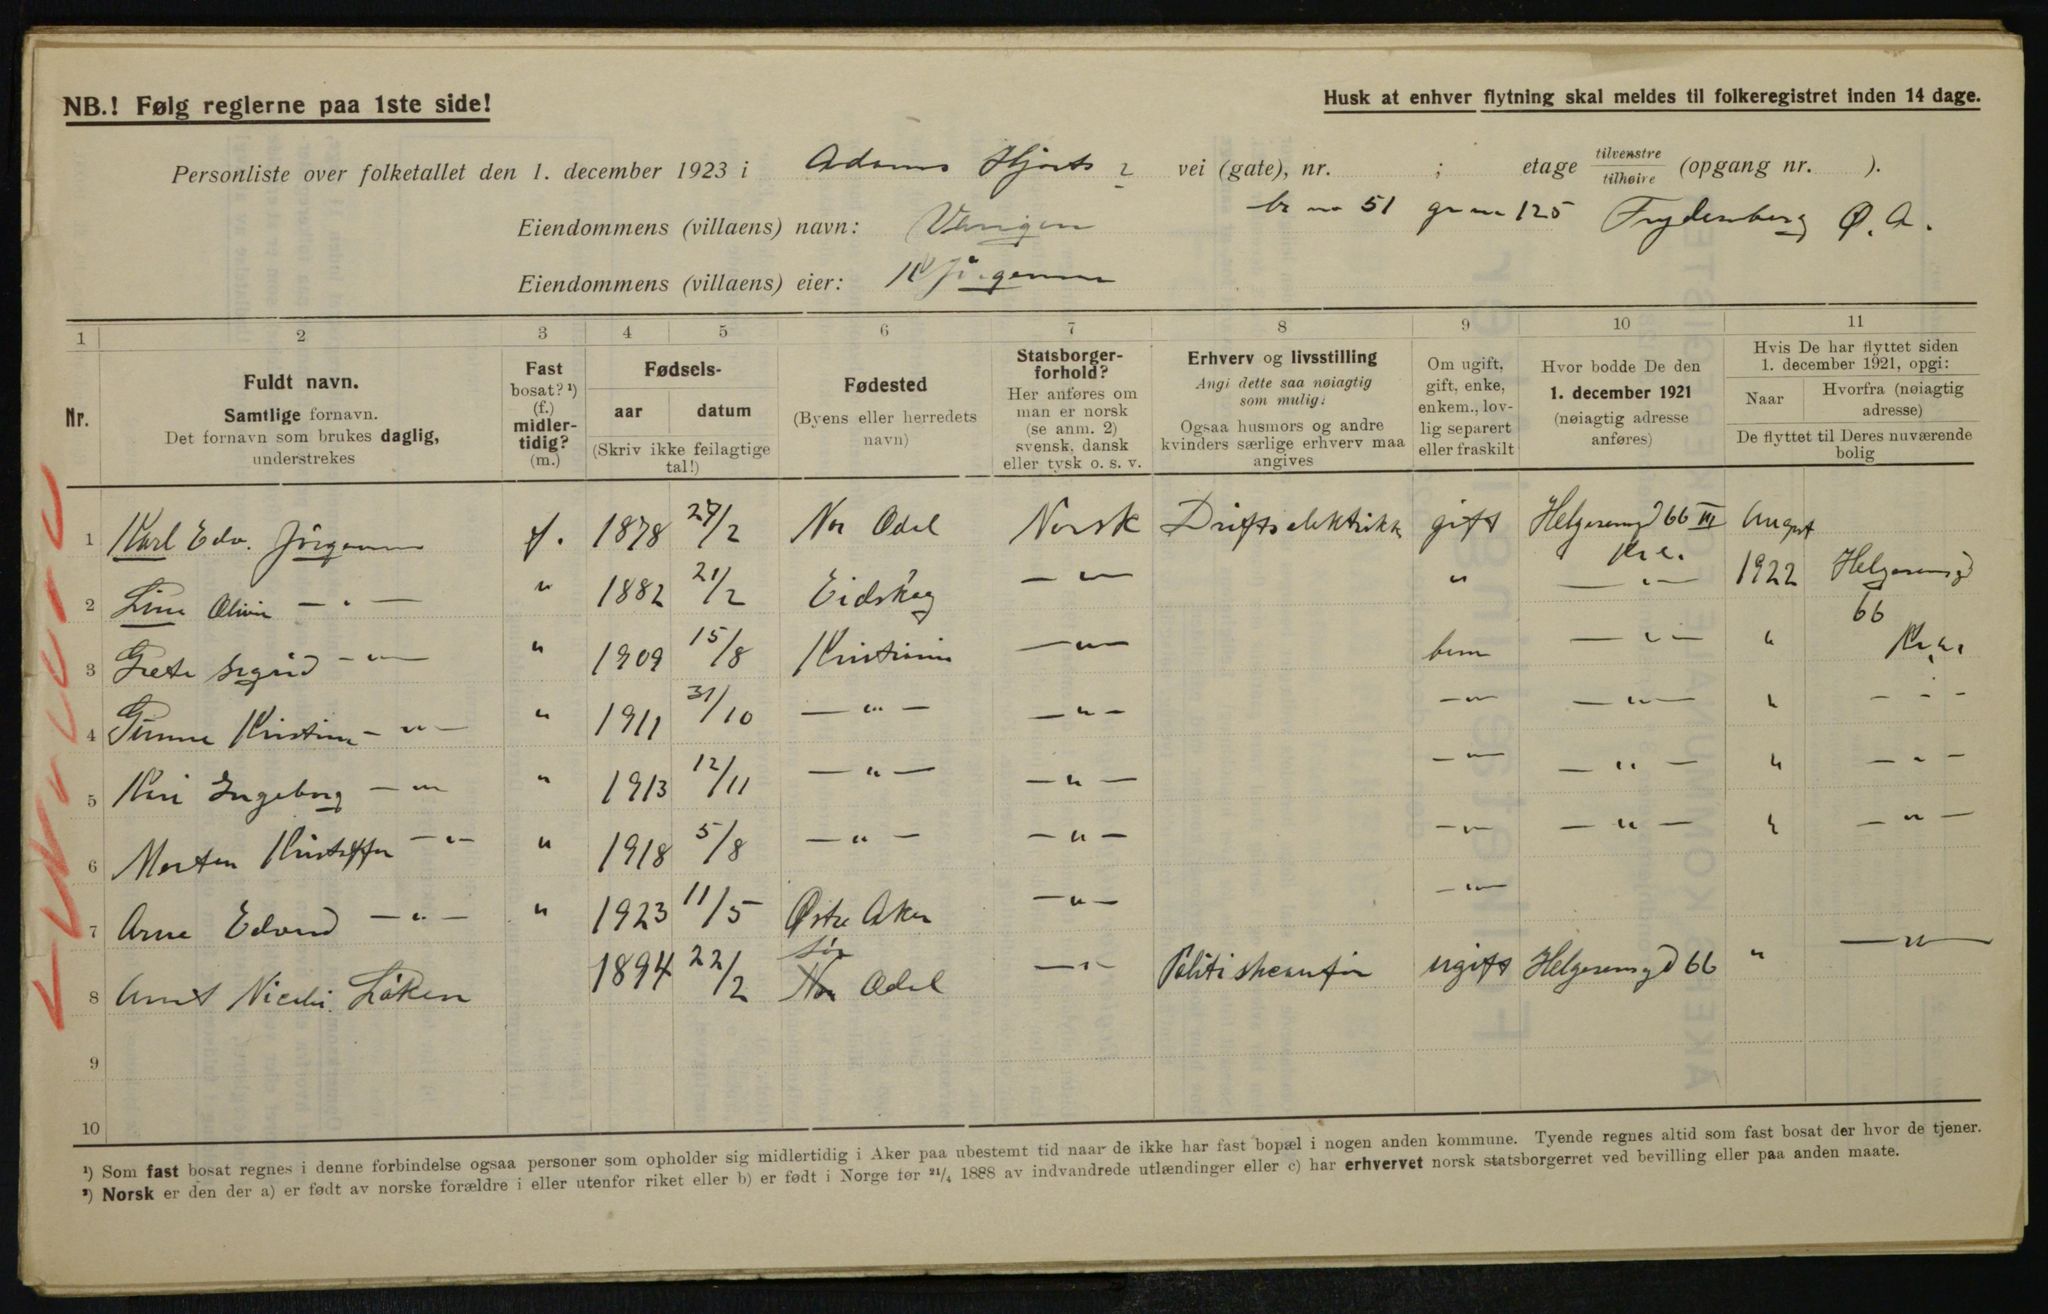 NB.! Følg reglerne paa 1ste side!
Husk at enhver flytning skal meldes til folkeregistret inden 14 dage.
Personliste over folketallet den 1. december 1923 i Adams Hjorts vei (gate), nr. ; etage tilvenstre tilhøire (opgang nr. ).
Eiendommens (villaens) navn: br no 51 gr no 125 Frydenberg Ø. A.
Eiendommens (villaens) eier: K Jörgensen
1 2 3 4 5 6 7 8 9 10 11
Nr.
Fuldt navn.
Samtlige fornavn.
Det fornavn som brukes daglig,
understrekes
Fast
bosat? ¹)
(f.)
midler-
tidig?
(m.)
Fødsels-
aar datum
(Skriv ikke feilagtige
tal!)
Fødested
(Byens eller herredets
navn)
Statsborger-
forhold?
Her anføres om
man er norsk
(se anm. 2)
svensk, dansk
eller tysk o. s. v.
Erhverv og livsstilling
Angi dette saa nøiagtig
som mulig:
Ogsaa husmors og andre
kvinders særlige erhverv maa
angives
Om ugift,
gift, enke,
enkem., lov-
lig separert
eller fraskilt
Hvor bodde De den
1. december 1921
(nøiagtig adresse
anføres)
Hvis De har flyttet siden
1. december 1921, opgi:
Naar Hvorfra (nøiagtig
adresse)
De flyttet til Deres nuværende
bolig
1 Karl Edv. Jörgensen f. 1878 27/2 Nor Odel Norsk Driftselektriker gift Helgesensgd 66 III Kr.a. August
2 Line Olivie — " — " 1882 21/2 Eidskog — " — " — " — 1922 Helgesensgd
66
3 Grete Sigrid — " — " 1909 15/8 Kristiania — " — barn — " — " Kr.a.
4 Kristine — " — " 1911 31/10 — " — — " — — " — — " — " — " —
5 Kari Ingeborg — " — " 1913 12/11 — " — — " — — " — — " — " — " —
6 Morten Kristoffer — " — " 1918 5/8 — " — — " — — " — — " — " — " —
7 Arne Edvard — " — " 1923 11/5 Østre Aker — " — — " —
8 Arnt Nicolai Löken 1894 22/2 Sör Odel — " — Politikonstabel ugift Helgesensgd 66 " — " —
9
10
¹) Som fast bosat regnes i denne forbindelse ogsaa personer som opholder sig midlertidig i Aker paa ubestemt tid naar de ikke har fast bopæl i nogen anden kommune. Tyende regnes altid som fast bosat der hvor de tjener.
²) Norsk er den der a) er født av norske forældre i eller utenfor riket eller b) er født i Norge før ²¹/₄ 1888 av indvandrede utlændinger eller c) har erhvervet norsk statsborgerret ved bevilling eller paa anden maate.